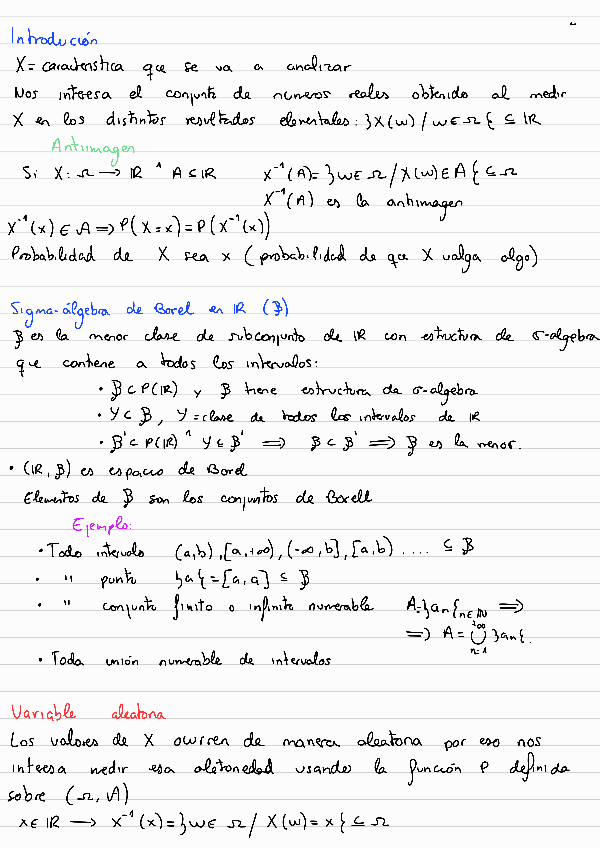 Introdución
X = característica que se va a analizar
Nos interesa el conjunto de números reales obtenido al medir
X en los distintos resultados elementales: }X(ω) / ω∈Ω{ ⊆ IR
Antiimagen
Si X: Ω → IR ^ A⊆IR X⁻¹(A) = }ω∈Ω / X(ω)∈A{ ⊆ Ω
X⁻¹(A) es la antimagen
X⁻¹(x) ∈ A ⟹ P(X=x) = P(X⁻¹(x))
Probabilidad de X sea x (probabilidad de que X valga algo)
Sigma-álgebra de Borel en IR (β)
β es la menor clase de subconjunto de IR con estructura de σ-algebra
que contiene a todos los intervalos:
• β ⊂ P(IR) y β tiene estructura de σ-algebra
• Y ⊂ β, Y = clase de todos los intervalos de IR
• β' ⊂ P(IR) ^ Y ⊆ β' ⟹ β ⊂ β' ⟹ β es la menor.
• (IR, β) es espacio de Borel
Elementos de β son los conjuntos de Borell
Ejemplo:
• Todo intervalo (a,b), [a,+∞), (-∞,b], [a,b) .... ⊆ β
• " punto }a{ = [a,a] ⊆ β
• " conjunto finito o infinito numerable A = }an{ n∈IN ⟹
⟹ A = ⋃ₙ₌₁^{+∞} }an{.
• Toda unión numerable de intervalos
Variable aleatoria
Los valores de X ocurren de manera aleatoria por eso nos
interesa medir esa aletoriedad usando la función P definida
sobre (Ω, A)
x∈IR → X⁻¹(x) = }ω∈Ω / X(ω) = x{ ⊆ Ω